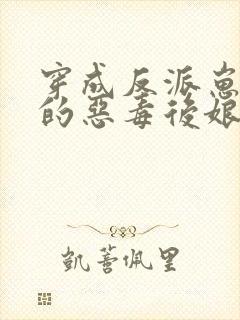 穿成反派崽
的惡毒後娘
凱蕾佩里